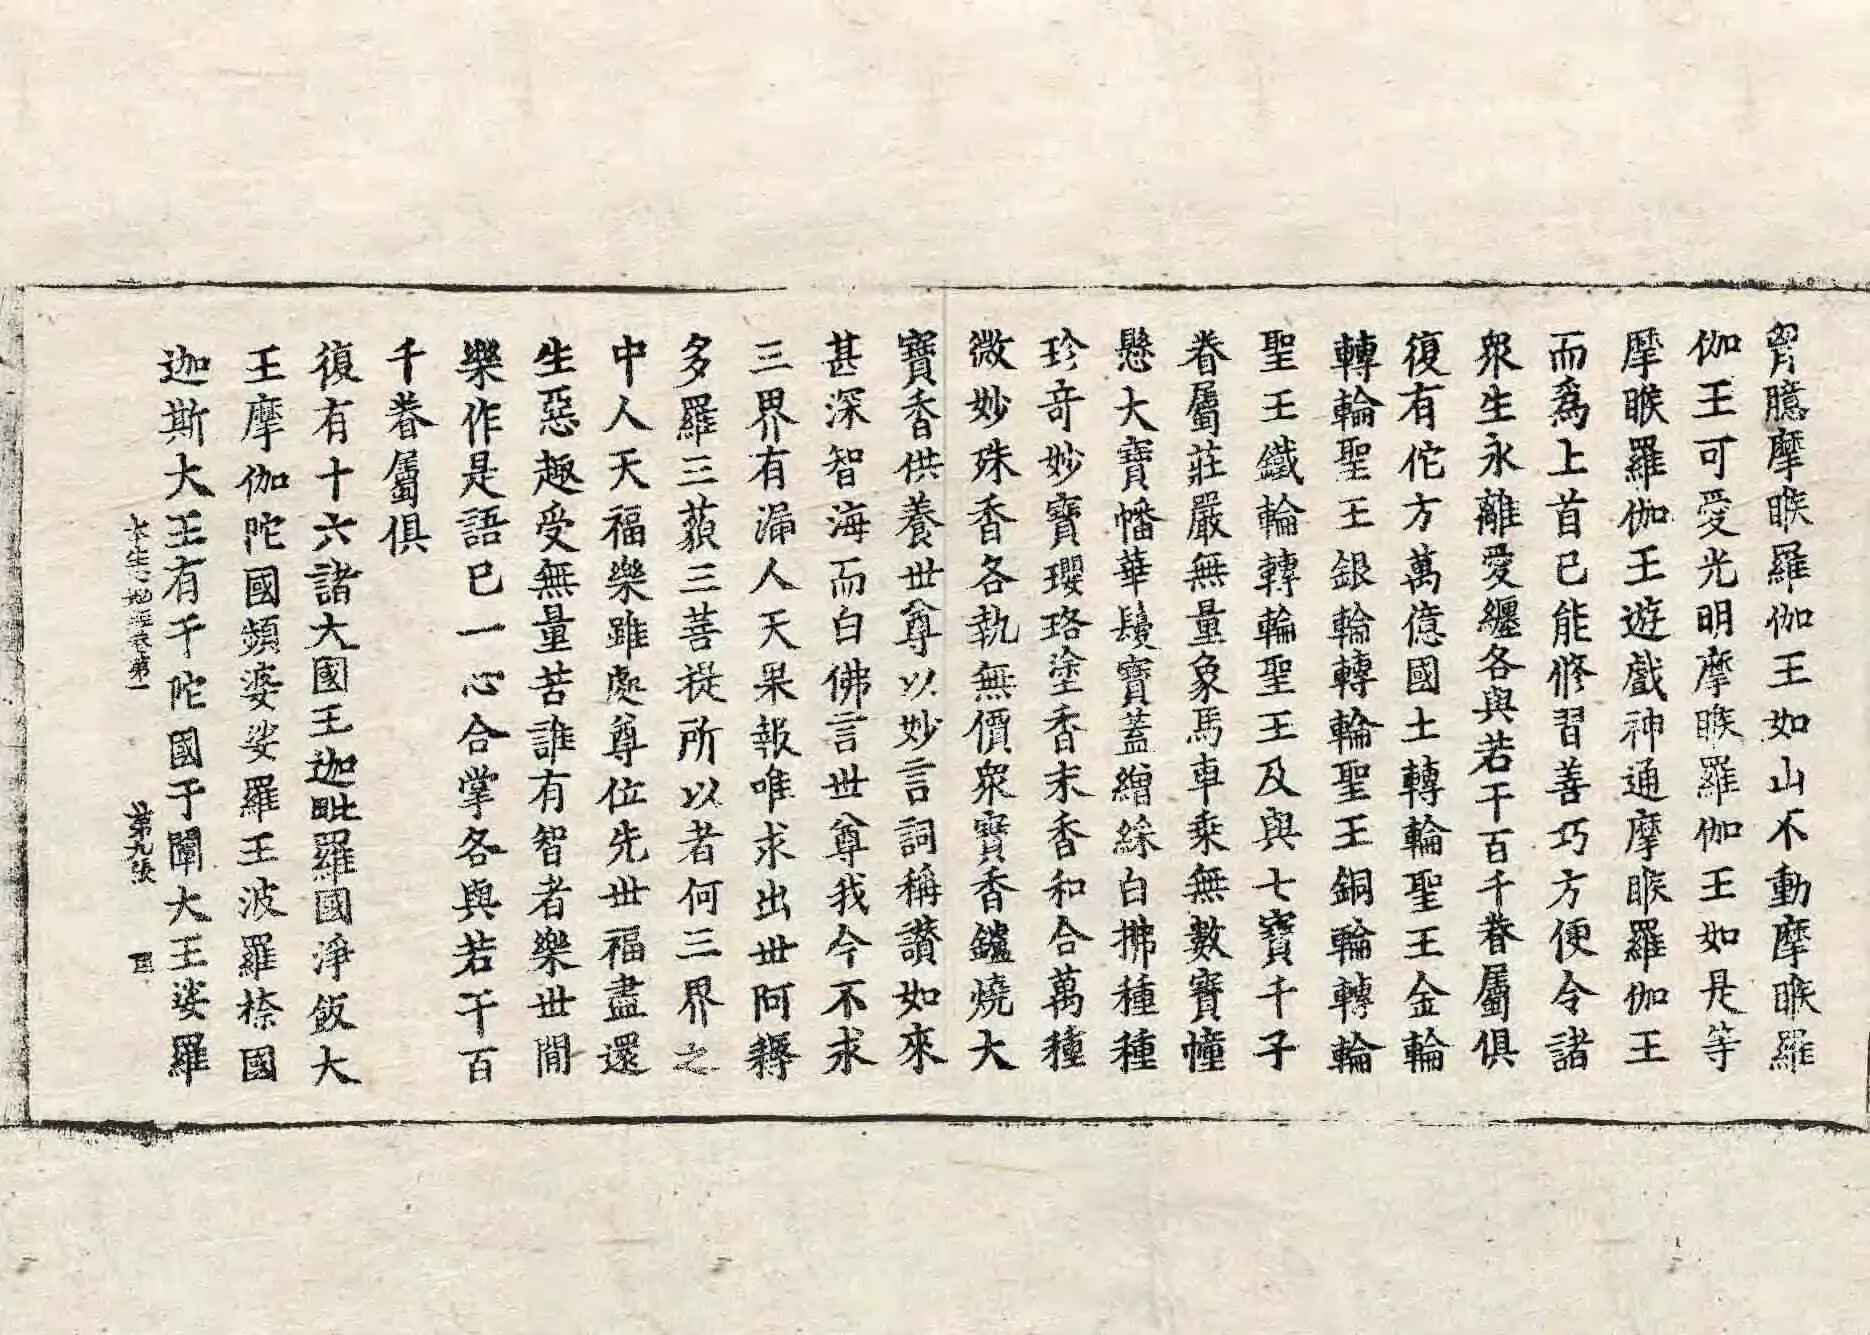 胷臆摩睺羅伽王如山不動摩睺羅
伽王可愛光明摩睺羅伽王如是等
摩睺羅伽王遊戲神通摩睺羅伽王
而爲上首已能修習善巧方便令諸
眾生永離愛纏各與若干百千眷屬俱
復有佗方萬億國土轉輪聖王金輪
轉輪聖王銀輪轉輪聖王銅輪轉輪
聖王鐵輪轉輪聖王及與七寶千子
眷屬莊嚴無量象馬車乘無數寶幢
懸大寶幡華鬘寶蓋繒綵白拂種種
珍奇妙寶瓔珞塗香末香和合萬種
微妙殊香各執無價眾寶香鑪燒大
寶香供養世尊以妙言詞稱讃如來
甚深智海而白佛言世尊我今不求
三界有漏人天果報唯求出世阿耨
多羅三藐三菩提所以者何三界之
中人天福樂雖處尊位先世福盡還
生惡趣受無量苦誰有智者樂世間
樂作是語已一心合掌各與若干百
千眷屬俱
復有十六諸大國王迦毗羅國淨飯大
王摩伽陀國頻婆娑羅王波羅㮈國
迦斯大王有千陀國于闐大王娑羅
本生心地經卷第一 第九張